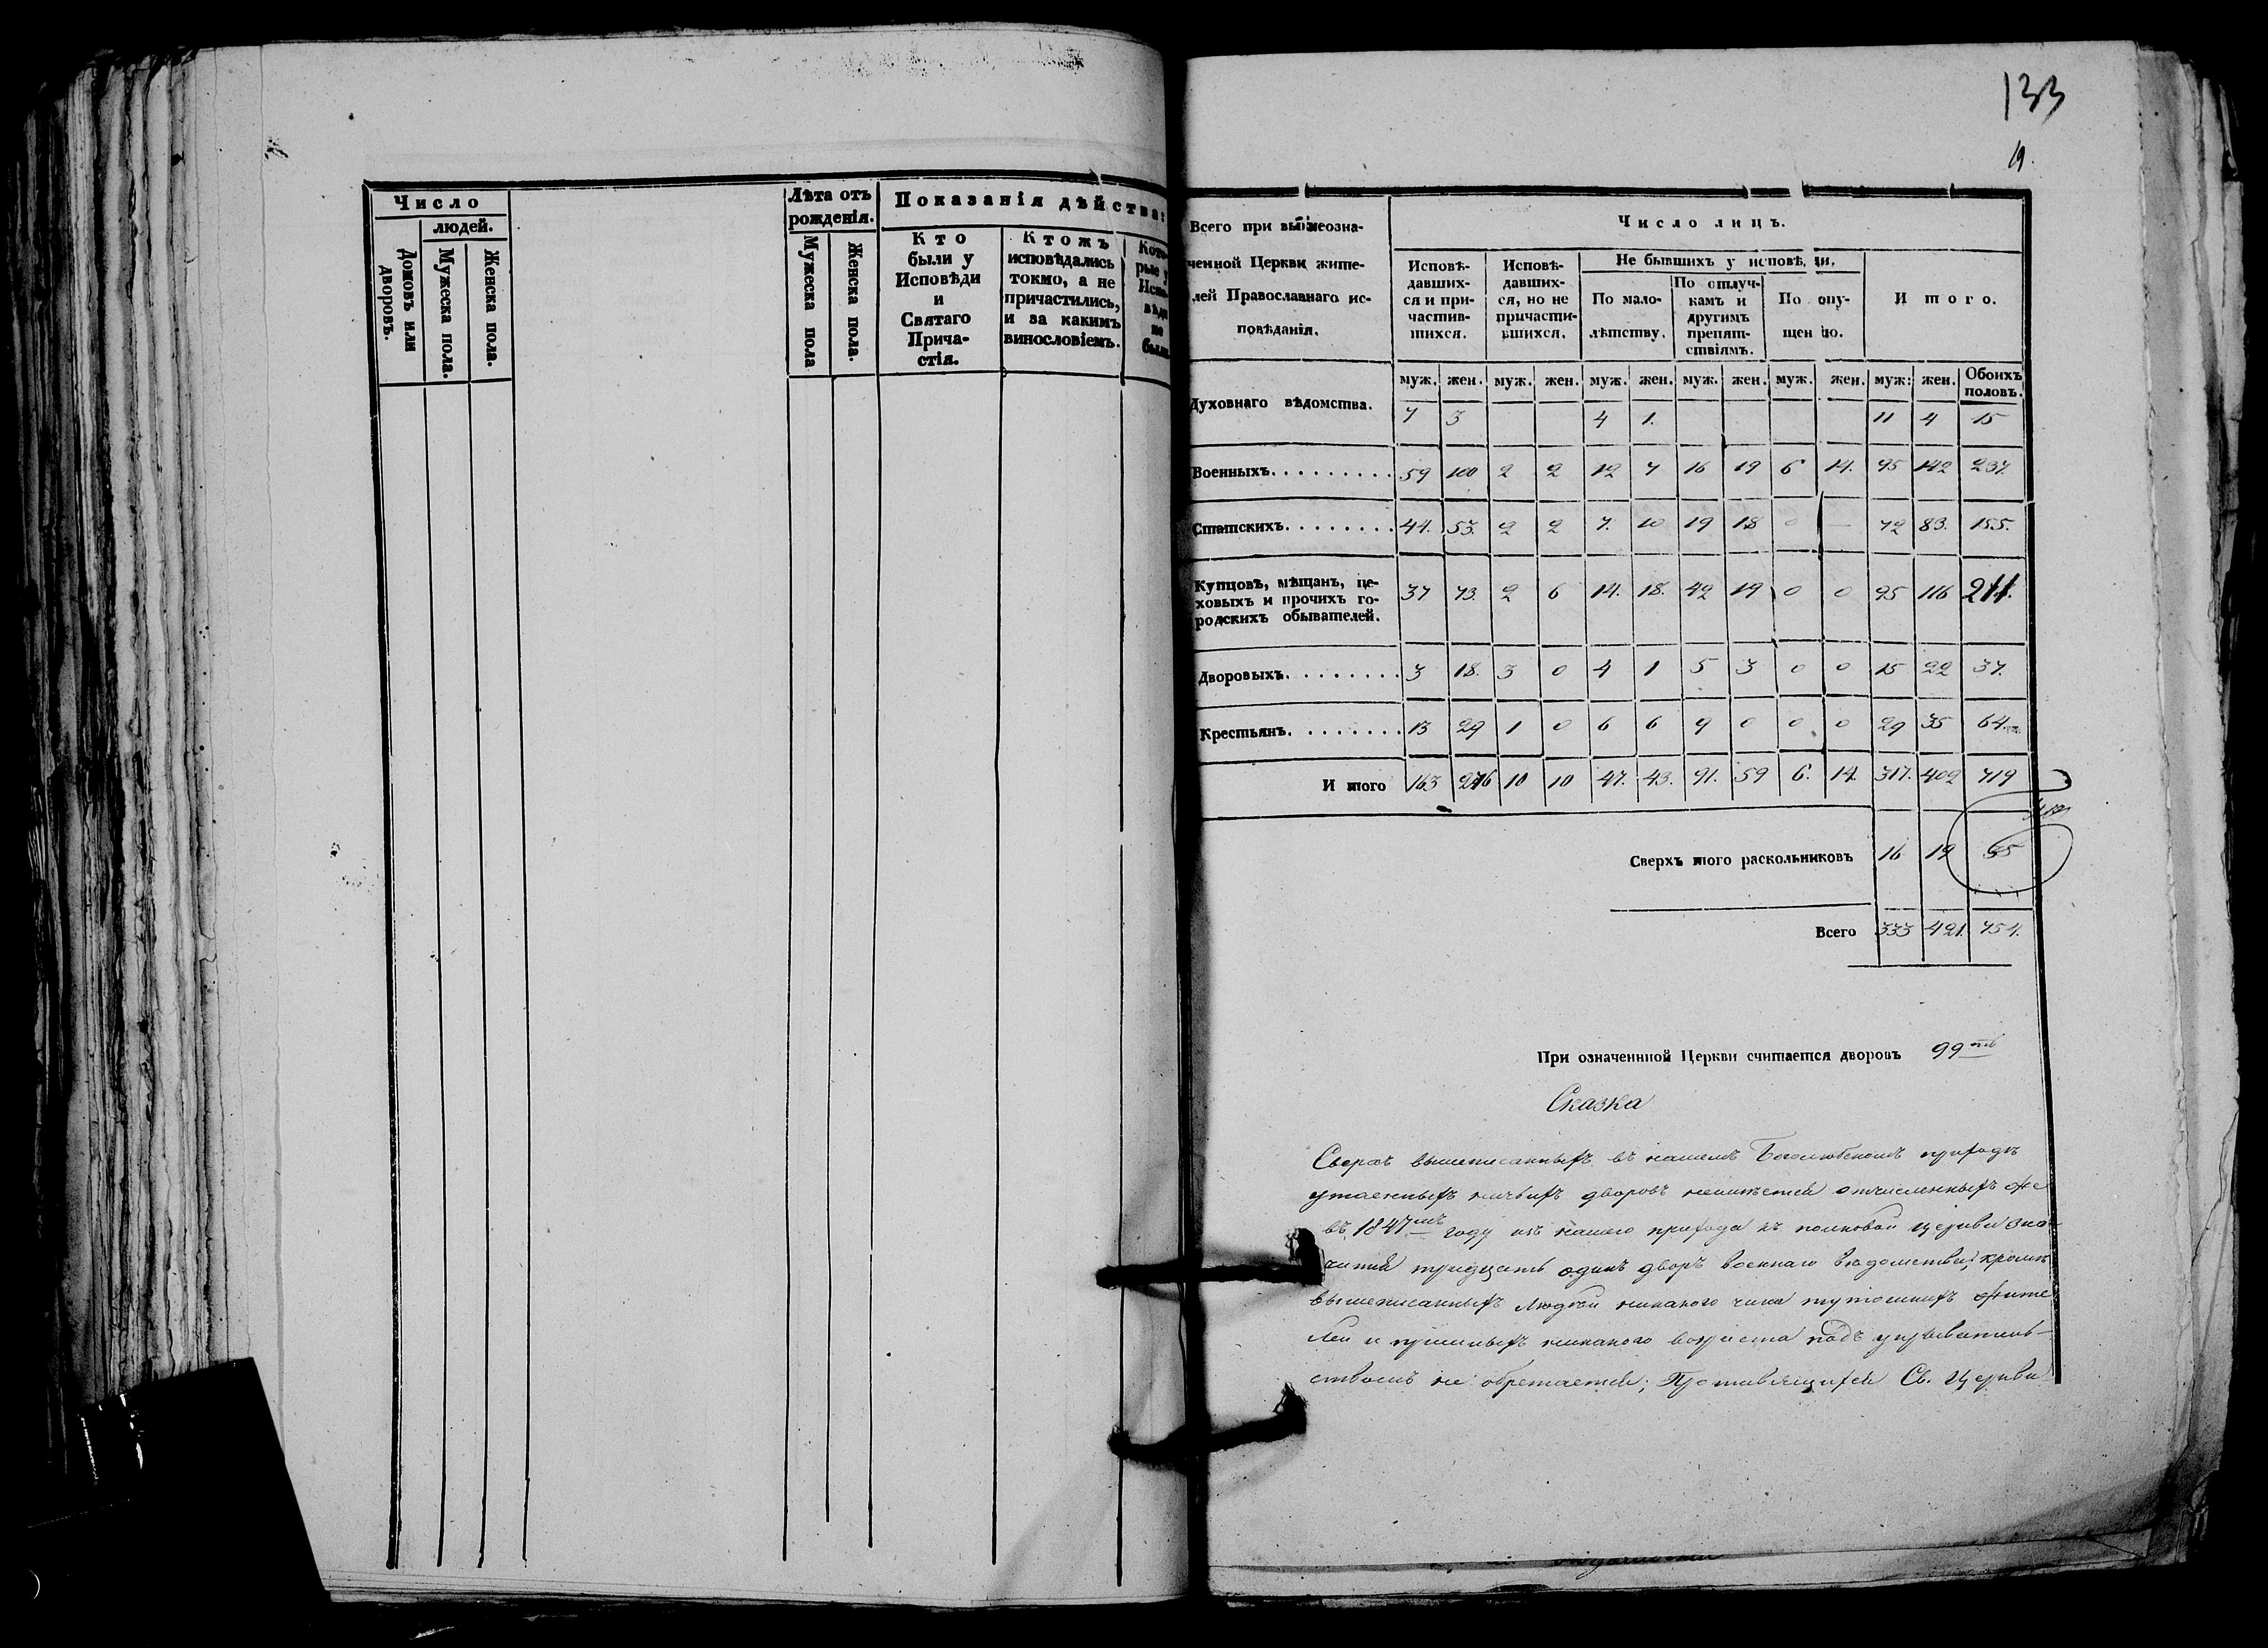 133
19.
Число
людей.
Домовъ или дворовъ.
Мужеска пола.
Женска пола.
Лѣта отъ рожденія.
Мужеска пола
Женска пола.
Показанія дѣйства:
Кто были у Исповѣди и Святаго Причастія.
Ктожъ исповѣдались токмо, а не причастились, и за какимъ винословіемъ.
Которые у Исповѣди не были
Всего при вышеозна-
ченной Церкви жите-
лей Православнаго ис-
повѣданія.
Число лицъ.
Исповѣ-
давших-
ся и при-
частив-
шихся.
Исповѣ-
давших-
ся, но не
причасти-
вшихся.
Не бывшихъ у исповѣди,
По мало-
лѣтству.
По отлуч-
камъ и
другимъ
препят-
ствіямъ.
По опу-
щенію.
И того.
муж. жен. муж. жен. муж. жен. муж. жен. муж. жен. муж: жен. Обоихъ половъ.
Духовнаго вѣдомства. 7 3 4 1. 11 4 15
Военныхъ. 59 100 2 2 12 7 16 19 6 14. 95 142 237.
Статскихъ. 44. 53. 2 2 7. 10 19 18 0 — 72 83. 155.
Купцовъ, мѣщанъ, це-
ховыхъ и прочихъ го-
родскихъ обывателей. 37 73. 2 6 14. 18. 42 19 0 0 95 116 211.
Дворовыхъ. 3 18. 3 0 4 1 5 3 0 0 15 22 37.
Крестьянъ. 13 29 1 0 6 6 9 0 0 0 29 35 64.
И того 163 276 10 10 47. 43. 91. 59 6. 14. 317. 402 719
Сверхъ того раскольниковъ 16 19 35
Всего 333 421. 754.
При означеннной Церкви считается дворовъ 99ть
Сказка
Сверхъ вышеписанныхъ въ нашемъ Боголюбскомъ приходѣ
утаенныхъ ничьихъ дворовъ неимѣется отчисленныхъ же
въ 1847мъ году изъ нашего прихода къ полковой церкви зна-
чится тридцать одинъ дворъ военнаго вѣдомства; кромѣ
вышеписанныхъ людей никакого чина тутошнихъ жите
лей и пришлыхъ никакого возраста подъ укрывательь-
ствомъ не обретается; Противящихся Св. Церкви